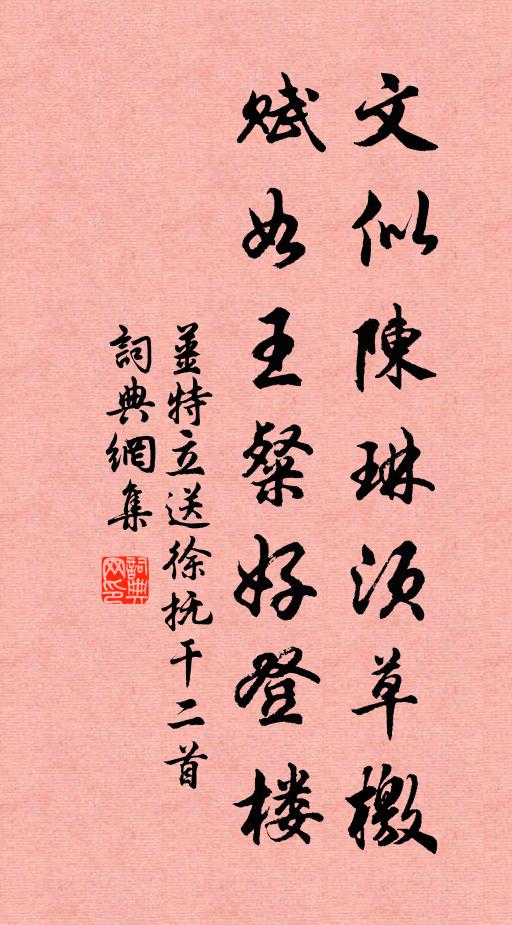 文似陳琳須草檄
賦如王粲好登楼
姜特立送徐抚干二首
詞典網集
詞典网印